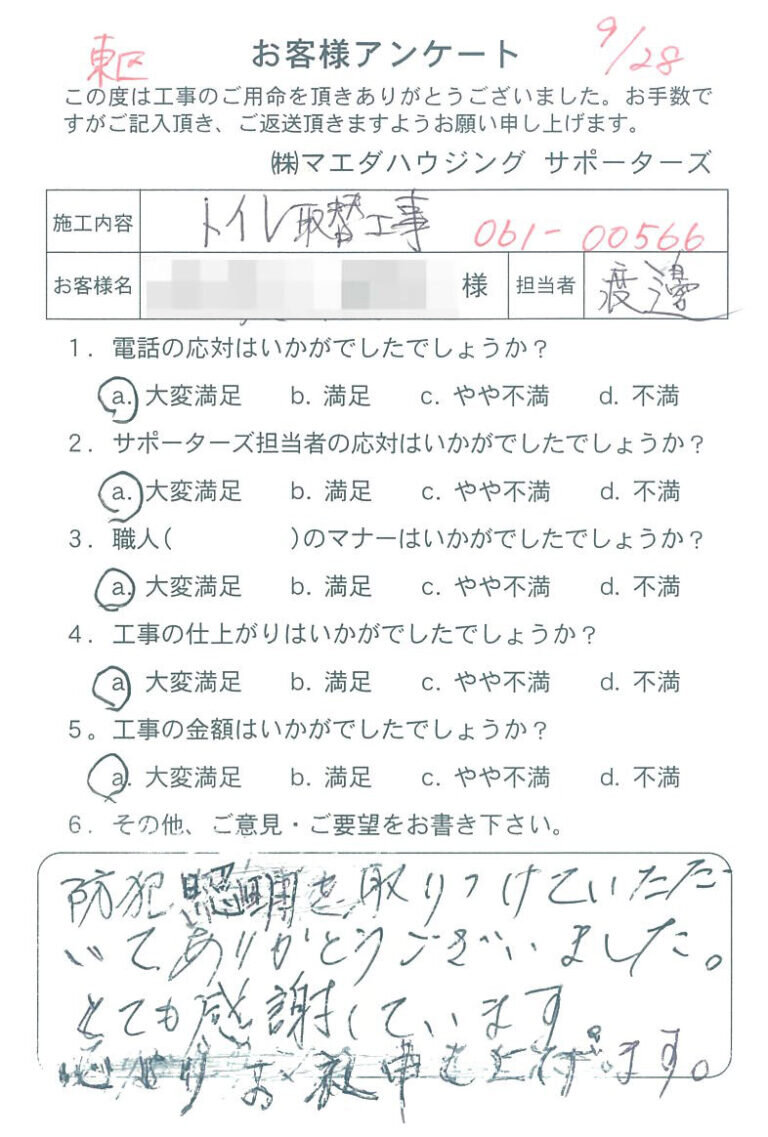 東区 お客様アンケート 9/28
この度は工事のご用命を頂きありがとうございました。お手数で
すがご記入頂き、ご返送頂きますようお願い申し上げます。
㈱マエダハウジング サポーターズ
施工内容 トイレ取替工事 061-00566
お客様名 様 担当者 渡邊
1. 電話の応対はいかがでしたでしょうか?
a. 大変満足 b. 満足 c. やや不満 d. 不満
2. サポーターズ担当者の応対はいかがでしたでしょうか?
a. 大変満足 b. 満足 c. やや不満 d. 不満
3. 職人( )のマナーはいかがでしたでしょうか?
a. 大変満足 b. 満足 c. やや不満 d. 不満
4. 工事の仕上がりはいかがでしたでしょうか?
a 大変満足 b. 満足 c. やや不満 d. 不満
5。工事の金額はいかがでしたでしょうか?
a. 大変満足 b. 満足 c. やや不満 d. 不満
6. その他、ご意見・ご要望をお書き下さい。
防犯照明を取りつけていただ
いてありがとうございました。
とても感謝しています
心よりお礼申し上げます。